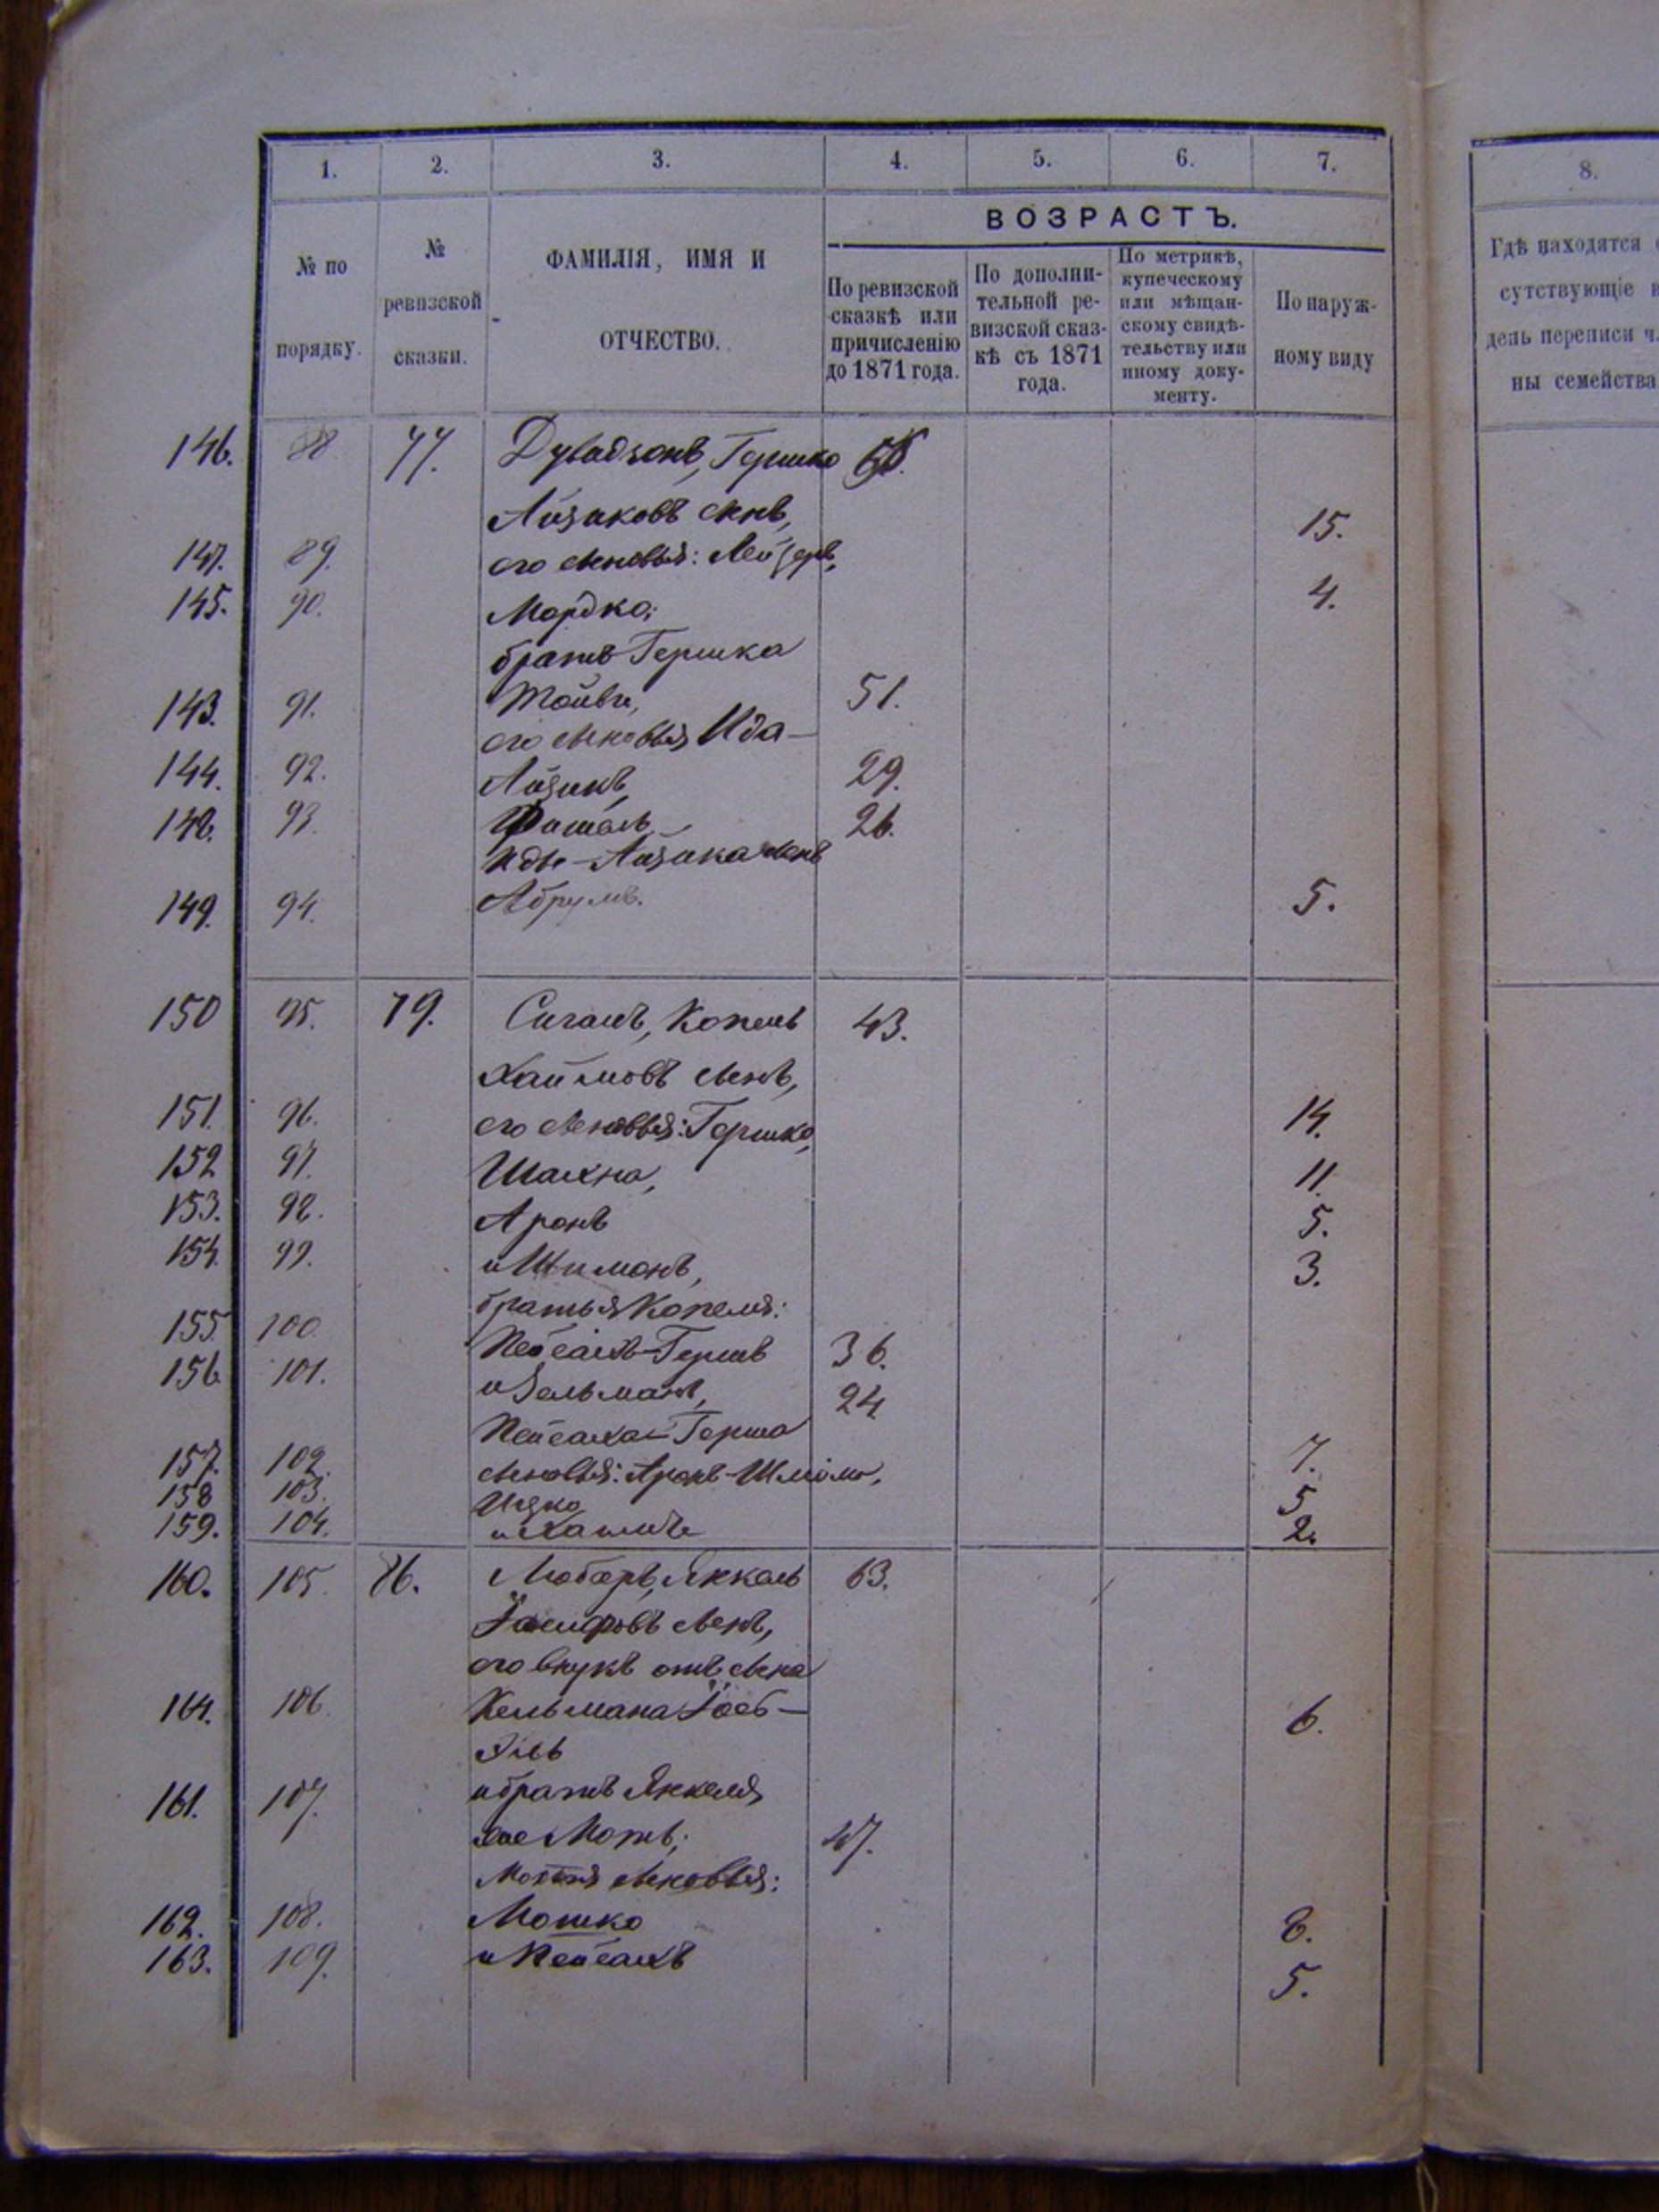 1. 2. 3. 4. 5. 6. 7. 8.
№ по порядку.
№ ревизской сказки.
ФАМИЛІЯ, ИМЯ И ОТЧЕСТВО.
ВОЗРАСТЪ.
По ревизской сказкѣ или причисленію до 1871 года.
По дополнительной ревизской сказкѣ съ 1871 года.
По метрикѣ, купеческому или мѣщанскому свидѣтельству или иному документу.
По наружному виду
Гдѣ находятся
сутствующіе
день переписи
ны семейства
146. 88. 77. Гершко
Айзиковъ сынъ, 15.
147. 89. его сыновья: Лейзеръ,
145. 90. Мордко; 4.
братъ Гершка
143. 91. Тойвье, 51.
его сыновья Ида-
144. 92. Айзикъ, 29.
148. 93. Фишель 26.
Иды-Айзика сынъ
149. 94. Абрумъ. 5.
150 95. 79. Сиганъ, Копель 43.
Хаймовъ сынъ,
151. 96. его сыновья: Гершко, 14.
152 97. Шахна, 11.
153. 98. Аронъ 5.
154. 99. и Шимонъ, 3.
братья Копеля:
155. 100. Пейсахъ-Гершъ 36.
156 101. и Зельманъ, 24.
Пейсаха-Герша
157. 102. сыновья: Аронъ-Шлёма, 7.
158 103. Ицко 5
159. 104. 2.
160. 105. 86. Любаръ, Янкель 63.
Іосифовъ сынъ,
его внукъ отъ сына
164. 106. Кельмана Іось- 6.
Эль
161. 107. и братъ Янкеля
Мотъ; 47.
Мотя сыновья:
162. 108. Мошко 8.
163. 109. и Пейсахъ 5.